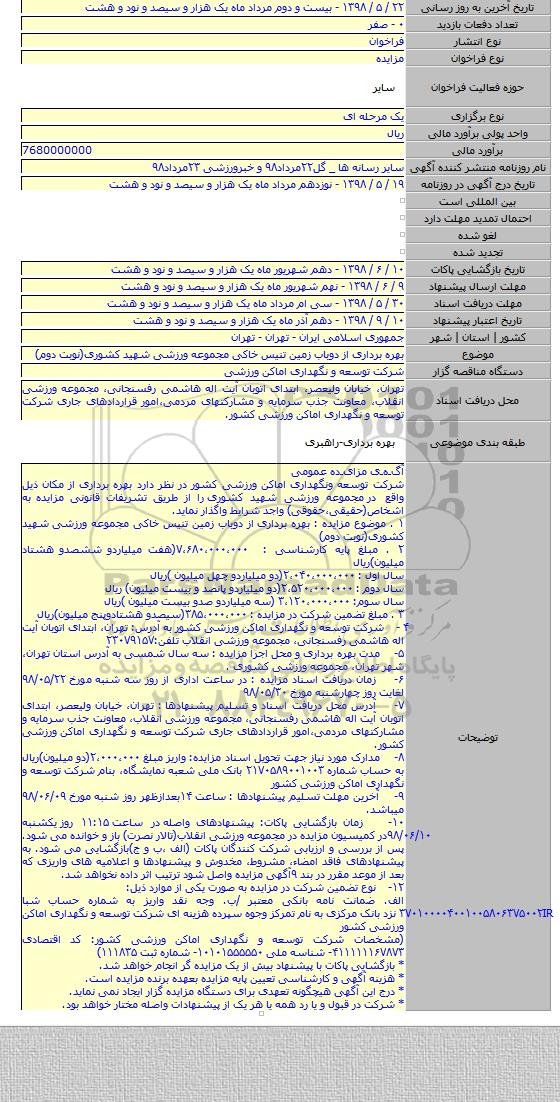 تاریخ آخرین به روز رسانی ۲۲ / ۵ / ۱۳۹۸ - بیست و دوم مرداد ماه یک هزار و سیصد و نود و هشت
تعداد دفعات بازدید ۰ - صفر
نوع انتشار فراخوان
نوع فراخوان مزایده
حوزه فعالیت فراخوان سایر
نوع برگزاری یک مرحله ای
واحد پولی برآورد مالی ریال
برآورد مالی 7680000000
نام روزنامه منتشر کننده آگهی سایر رسانه ها _ گل۲۲مرداد۹۸ و خبرورزشی ۲۳مرداد۹۸
تاریخ درج آگهی در روزنامه ۱۹ / ۵ / ۱۳۹۸ - نوزدهم مرداد ماه یک هزار و سیصد و نود و هشت
بین المللی است
احتمال تمدید مهلت دارد
لغو شده
تجدید شده
تاریخ بازگشایی پاکات ۱۰ / ۶ / ۱۳۹۸ - دهم شهریور ماه یک هزار و سیصد و نود و هشت
مهلت ارسال پیشنهاد ۹ / ۶ / ۱۳۹۸ - نهم شهریور ماه یک هزار و سیصد و نود و هشت
مهلت دریافت اسناد ۳۰ / ۵ / ۱۳۹۸ - سی ام مرداد ماه یک هزار و سیصد و نود و هشت
تاریخ اعتبار پیشنهاد ۱۰ / ۹ / ۱۳۹۸ - دهم آذر ماه یک هزار و سیصد و نود و هشت
کشور | استان | شهر جمهوری اسلامی ایران - تهران - تهران
موضوع بهره برداری از دوباب زمین تنیس خاکی مجموعه ورزشی شهید کشوری(نوبت دوم)
دستگاه مناقصه گزار شرکت توسعه و نگهداری اماکن ورزشی
محل دریافت اسناد تهران، خیابان ولیعصر، ابتدای اتوبان آیت اله هاشمی رفسنجانی، مجموعه ورزشی
انقلاب، معاونت جذب سرمایه و مشارکتهای مردمی،امور قراردادهای جاری شرکت
توسعه و نگهداری اماکن ورزشی کشور.
طبقه بندی موضوعی بهره برداری-راهبری
توضیحات
آگهی مزایده عمومی
شرکت توسعه ونگهداری اماکن ورزشی کشور در نظر دارد بهره برداری از مکان ذیل
واقع در مجموعه ورزشی شهید کشوری را از طریق تشریفات قانونی مزایده به
اشخاص(حقیقی،حقوقی) واجد شرایط واگذار نماید.
۱ . موضوع مزایده : بهره برداری از دوباب زمین تنیس خاکی مجموعه ورزشی شهید
کشوری(نوبت دوم)
۲ . مبلغ پایه کارشناسی : ۷،۶۸۰،۰۰۰،۰۰۰(هفت میلیاردو ششصدو هشتاد
میلیون)ریال
سال اول : ۲،۰۴۰،۰۰۰،۰۰۰(دو میلیاردو چهل میلیون )ریال
سال دوم : ۲،۵۲۰،۰۰۰،۰۰۰(دو میلیاردو پانصد و بیست میلیون) ریال
سال سوم: ۳،۱۲۰،۰۰۰،۰۰۰ (سه میلیاردو صدو بیست میلیون )ریال
۳ . مبلغ تضمین شرکت در مزایده : ۳۸۵،۰۰۰،۰۰۰(سیصدو هشتادوپنج میلیون)ریال
۴ - شرکت توسعه و نگهداری اماکن ورزشی کشور به آدرس: تهران، ابتدای اتوبان آیت
اله هاشمی رفسنجانی، مجموعه ورزشی انقلاب تلفن:۲۳۰۷۹۱۵۷
۵- مدت بهره برداری و محل اجرا مزایده : سه سال شمسی به آدرس استان تهران،
شهر تهران، مجموعه ورزشی کشوری .
۶- زمان دریافت اسناد مزایده : در ساعت اداری از روز سه شنبه مورخ ۹۸/۰۵/۲۲
لغایت روز چهارشنبه مورخ ۹۸/۰۵/۳۰
۷- آدرس محل دریافت اسناد و تسلیم پیشنهادها : تهران، خیابان ولیعصر، ابتدای
اتوبان آیت اله هاشمی رفسنجانی، مجموعه ورزشی انقلاب، معاونت جذب سرمایه و
مشارکتهای مردمی،امور قراردادهای جاری شرکت توسعه و نگهداری اماکن ورزشی
کشور.
۸- مدارک مورد نیاز جهت تحویل اسناد مزایده: واریز مبلغ ۲،۰۰۰،۰۰۰(دو میلیون)ریال
به حساب شماره ۲۱۷۰۵۸۹۰۰۱۰۰۳ بانک ملی شعبه نمایشگاه، بنام شرکت توسعه و
نگهداری اماکن ورزشی کشور
۹- آخرین مهلت تسلیم پیشنهادها : ساعت ۱۴بعدازظهر روز شنبه مورخ ۹۸/۰۶/۰۹
میباشد.
۱۰- زمان بازگشایی پاکات: پیشنهادهای واصله در ساعت ۱۱:۱۵ روز یکشنبه
۹۸/۰۶/۱۰در کمیسیون مزایده در مجموعه ورزشی انقلاب(تالار نصرت) باز و خوانده می شود.
پس از بررسی و ارزیابی شرکت کنندگان پاکات (الف ،ب و ج)بازگشایی می شود. به
پیشنهادهای فاقد امضاء، مشروط، مخدوش و پیشنهادها و اعلامیه های واریزی که
بعد از موعد مقرر در بند ۹آگهی مزایده واصل شود ترتیب اثر داده نخواهد شد.
۱۲- نوع تضمین شرکت در مزایده به صورت یکی از موارد ذیل:
الف. ضمانت نامه بانکی معتبر /ب. وجه نقد واریز به شماره حساب شبا
۳۷۰۱۰۰۰۰۴۰۰۱۰۰۵۸۰۶۳۷۵۰۰۲IR نزد بانک مرکزی به نام تمرکز وجوه سپرده هزینه ای شرکت توسعه و نگهداری اماکن
ورزشی کشور
(مشخصات شرکت توسعه و نگهداری اماکن ورزشی کشور: کد اقتصادی
۴۱۱۱۱۱۱۶۷۸۷۳- شناسه ملی ۱۰۱۰۱۵۵۵۵۵۰- شماره ثبت ۱۱۱۸۳۵)
* بازگشایی پاکات با پیشنهاد بیش از یک مزایده گر انجام خواهد شد.
* هزینه آگهی و کارشناسی تعیین پایه مزایده بعهده برنده مزایده است.
* درج این آگهی هیچگونه تعهدی برای دستگاه مزایده گزار ایجاد نمی نماید.
* شرکت در قبول و یا رد همه یا هر یک از پیشنهادات واصله مختار خواهد بود.